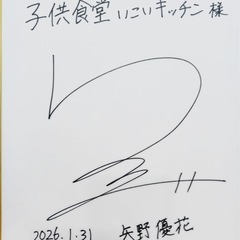 子供食堂 いこいキッチン 様
2026.1.31 矢野優花